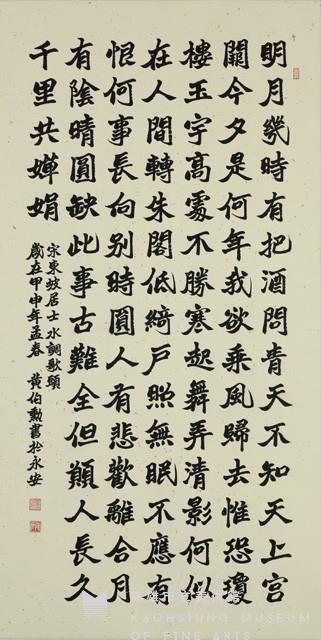 明月幾時有把酒問青天不知天上宮
闕今夕是何年我欲乘風歸去惟恐瓊
樓玉宇高處不勝寒起舞弄清影何似
在人間轉朱閣低綺戶照無眠不應有
恨何事長向別時圓人有悲歡離合月
有陰晴圓缺此事古難全但願人長久
千里共嬋娟
宋東坡居士水調歌頭
歲在甲申年孟春 黃伯勲書於永安
KAOHSIUNG MUSEUM
OF FINE ARTS